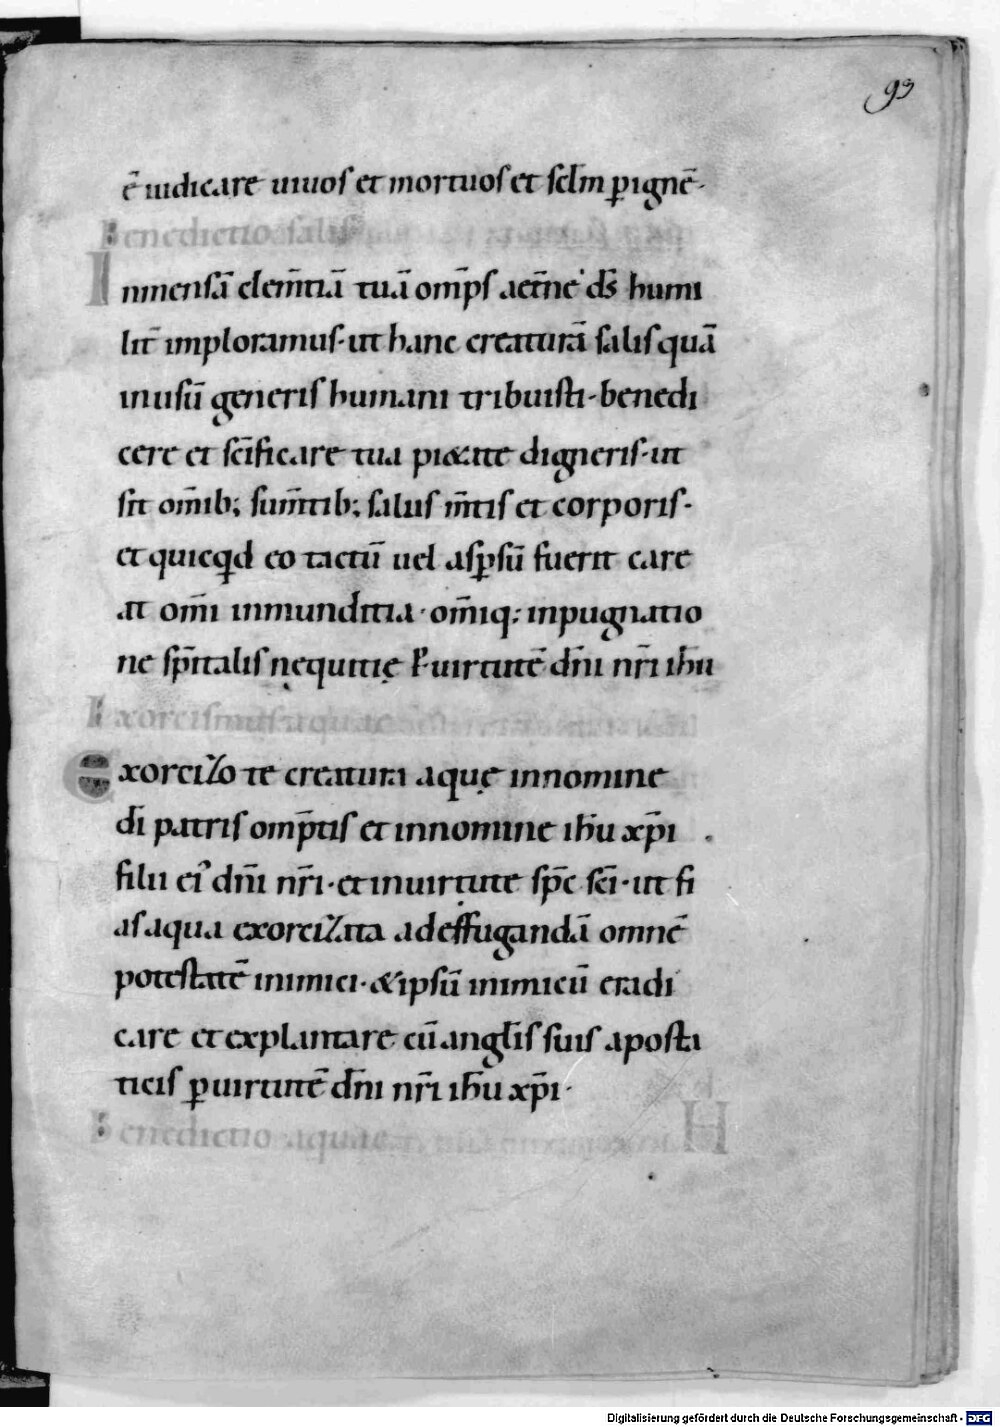 93
ē iudicare uiuos et mortuos et sclm̄ ꝑ ignē·
Benedictio salis
Inmensā clem̄tiā tuā omp̄s aet̄ne ds̄ humi
lit̄ imploramus· ut hanc creaturā salis quā
inusū generis humani tribuisti· benedi
cere et scīficare tua pietate digneris· ut
sit om̄ib; sum̄tib; salus m̄tis et corporis·
et quicqd eo tactū uel asꝑsū fuerit care
at om̄i inmunditia· om̄iq; inpugnatio
ne sp̄italis nequitię P uirtutē dn̄i nr̄i ih̄u
Exorcismus aquae
Exorcizo te creatura aquę innomine
dī patris omp̄tis et innomine ih̄u xp̄i
filii ei᾽ dn̄i nr̄i· et inuirtute sp̄c sc̄i· ut fi
as aqua exorcizata adeffugandā omnē
potestatē inimici· & ipsū inimicū eradi
care et explantare cū angl̄is suis aposta
ticis ꝑ uirtutē dn̄i nr̄i ih̄u xp̄i·
Benedictio aquae
Digitalisierung gefördert durch die Deutsche Forschungsgemeinschaft - DFG